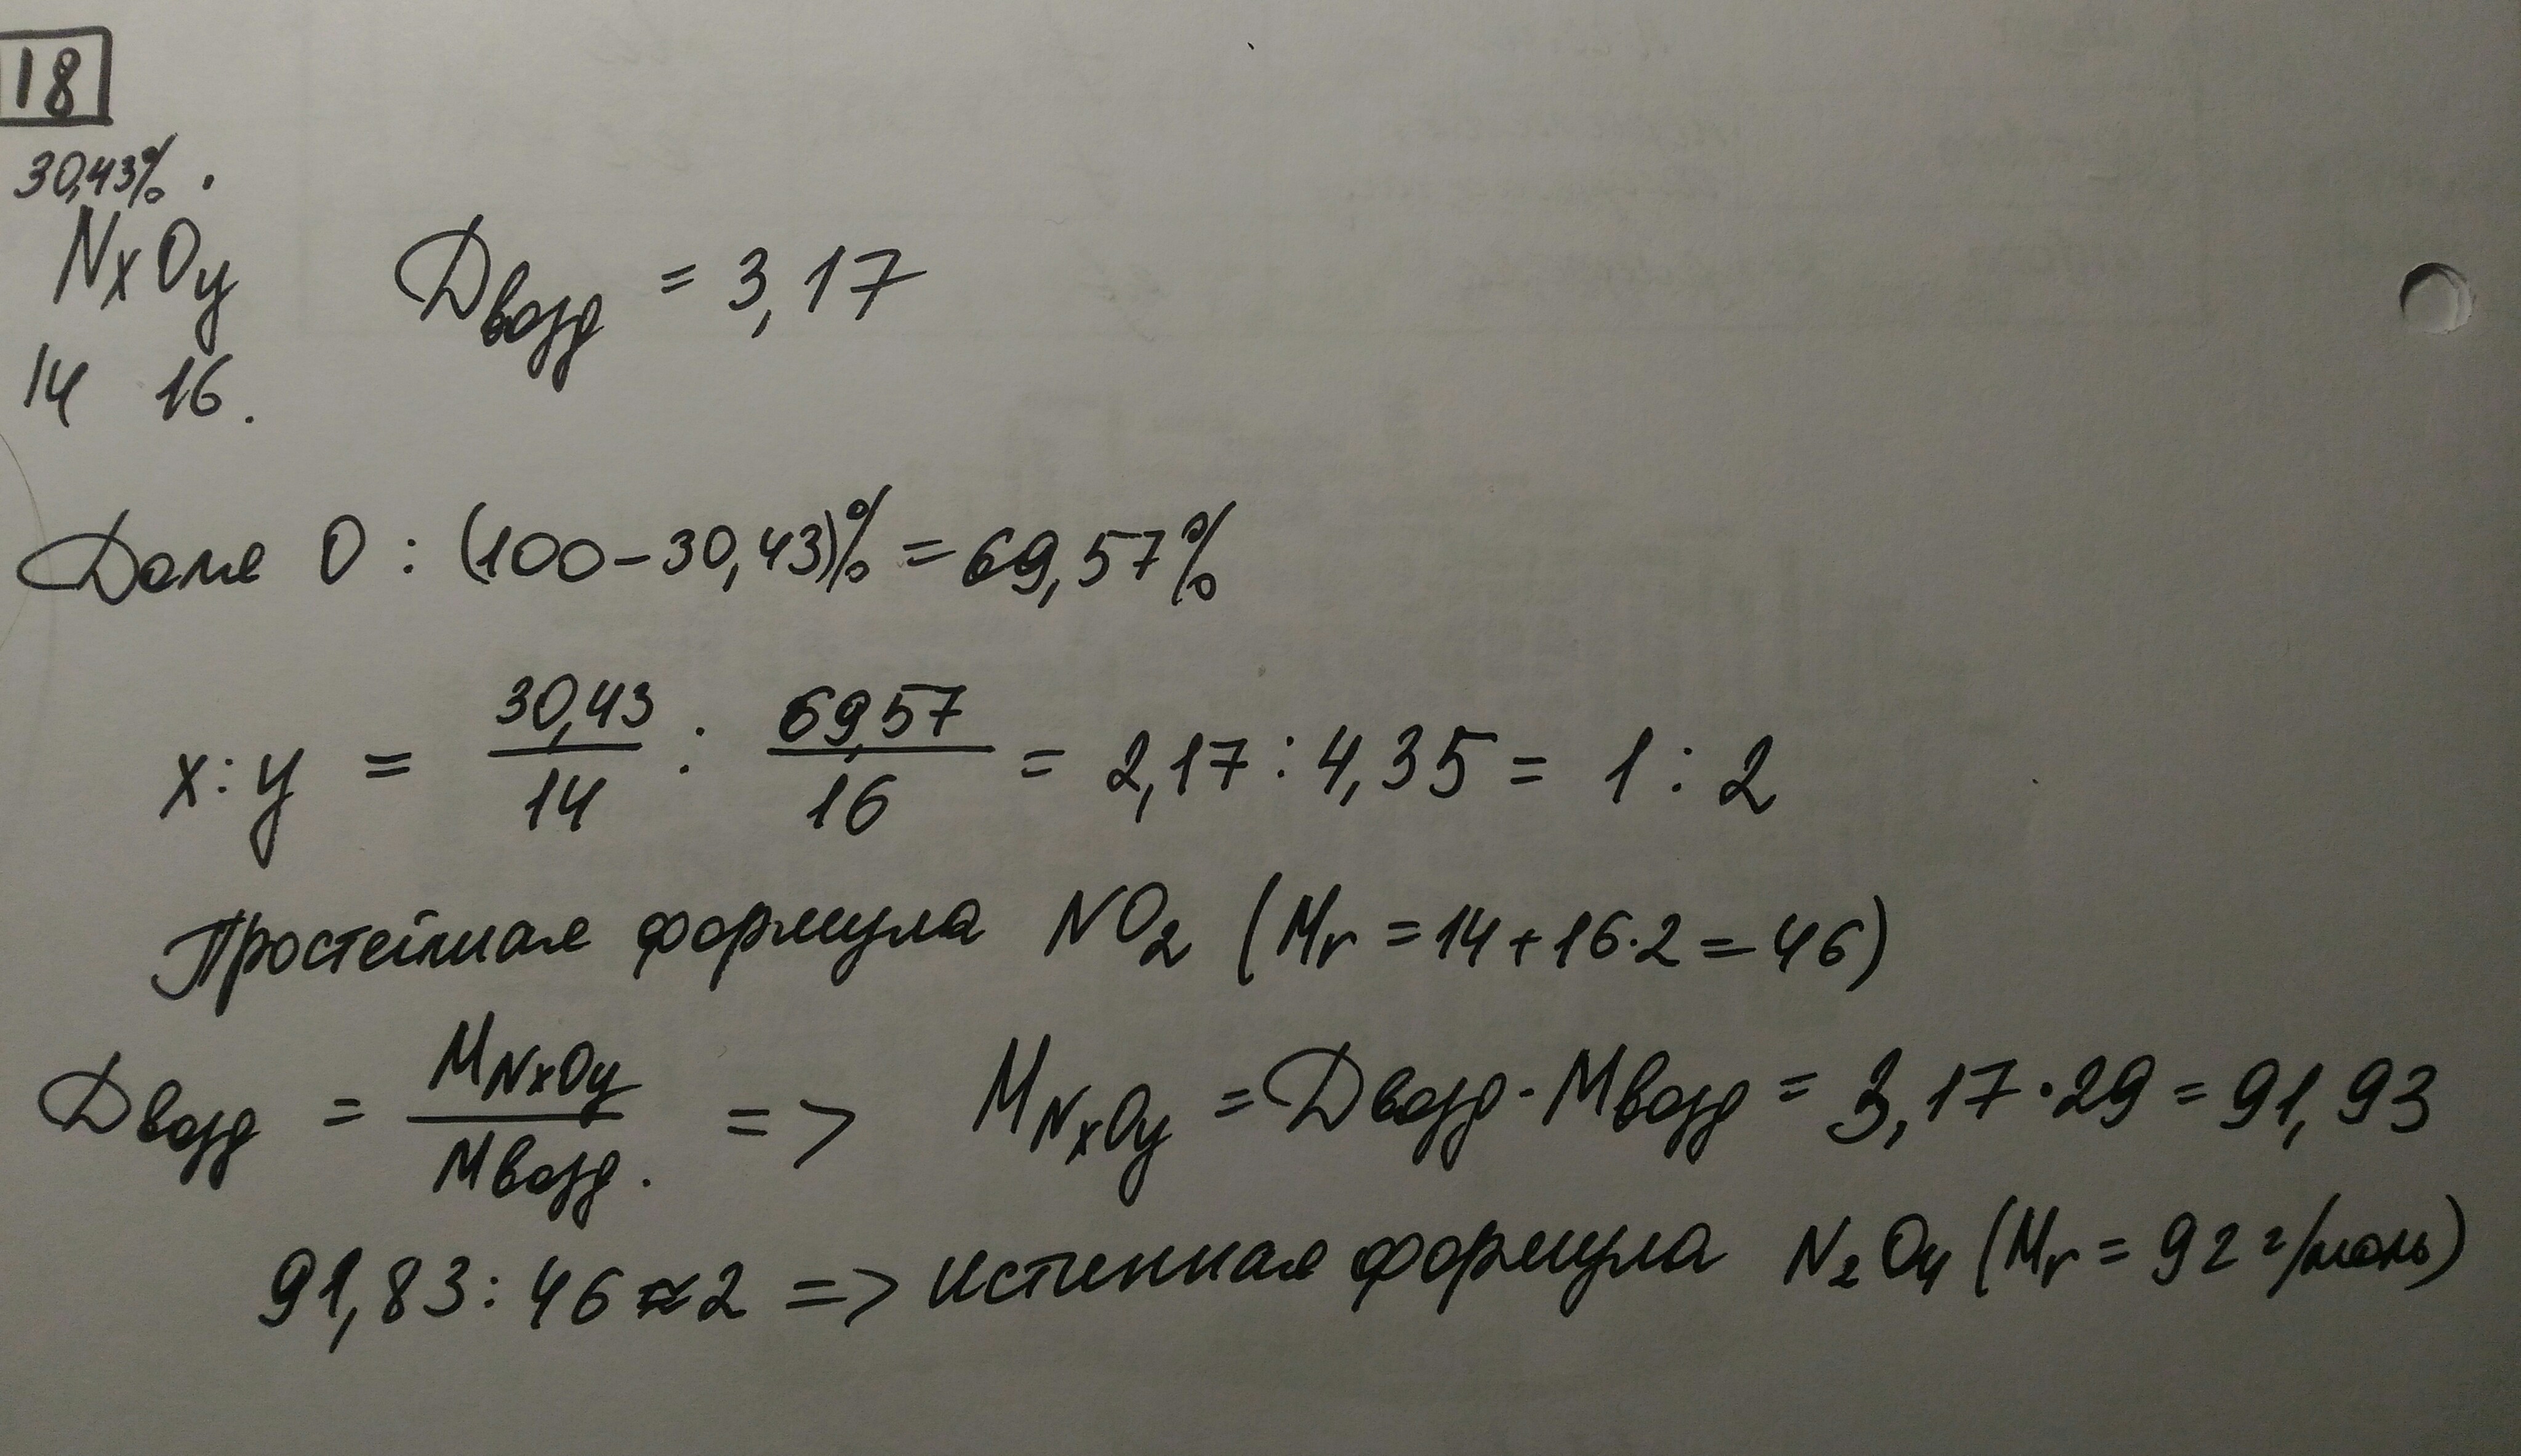 18
30,43% .
NxOy Двозд = 3,17
14 16.
Доля O : (100-30,43)% = 69,57%
x:y = 30,43/14 : 69,57/16 = 2,17 : 4,35 = 1 : 2
Простейшая формула NO2 (Mr = 14+16·2 = 46)
Двозд = MNxOy/Mвозд. => MNxOy = Двозд·Mвозд = 3,17·29 = 91,93
91,83 : 46 ≈ 2 => истинная формула N2O4 (Mr = 92 г/моль)